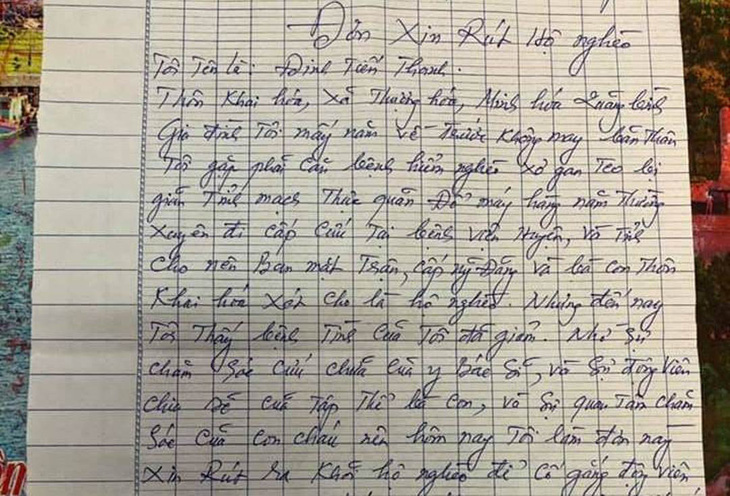 Đơn Xin Rút Hộ nghèo
Tôi Tên là: Đinh Tiến Thanh.
Thôn Khai hóa, Xã Thượng hóa, Minh hóa Quảng bình
Gia đình Tôi mấy năm về Trước không may bản Thân
Tôi gặp phải căn bệnh hiểm nghèo xơ gan Teo bị
giãn Tĩnh mạch Thực quản Đổ máy hằng năm Thường
Xuyên đi cấp cứu Tại bệnh viện Huyện, và Tỉnh
Cho nên Ban mặt Trận, Cấp uỷ Đảng và bà con Thôn
Khai hóa Xét cho là hộ nghèo. Nhưng đến nay
Tôi Thấy bệnh Tình Của Tôi đã giảm. Nhờ Sự
chăm Sóc Cứu chữa Của y Bác Sĩ, và Sự động Viên
Chia Sẽ Của Tập Thể bà Con, và Sự quan Tâm chăm
Sóc Của Con cháu nên hôm nay Tôi làm đơn này
Xin Rút ra Khỏi hộ nghèo để Cố gắng động viên